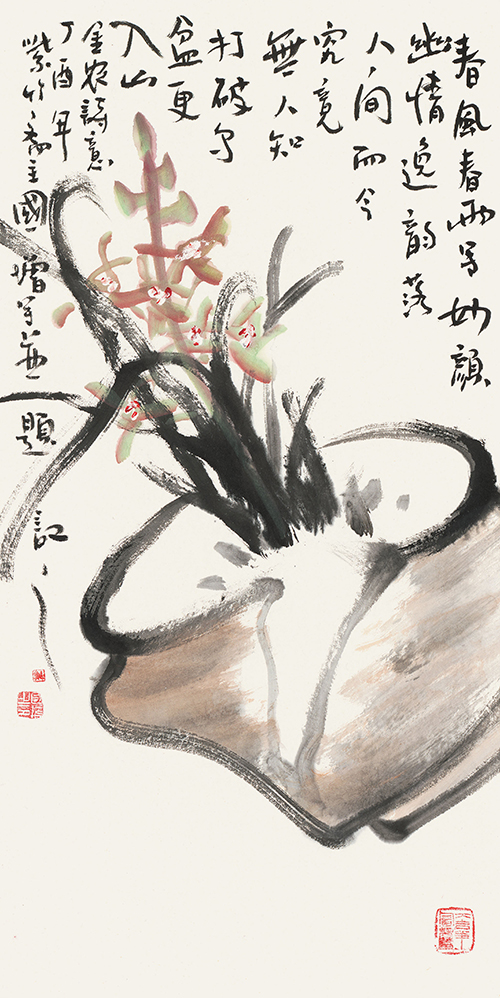 春風春雨写妙顏
幽情逸韵落
人间而今
究竟
無人知
打破乌
盆更
入山
金农詩意
丁酉年
紫竹斋主國增写並題記